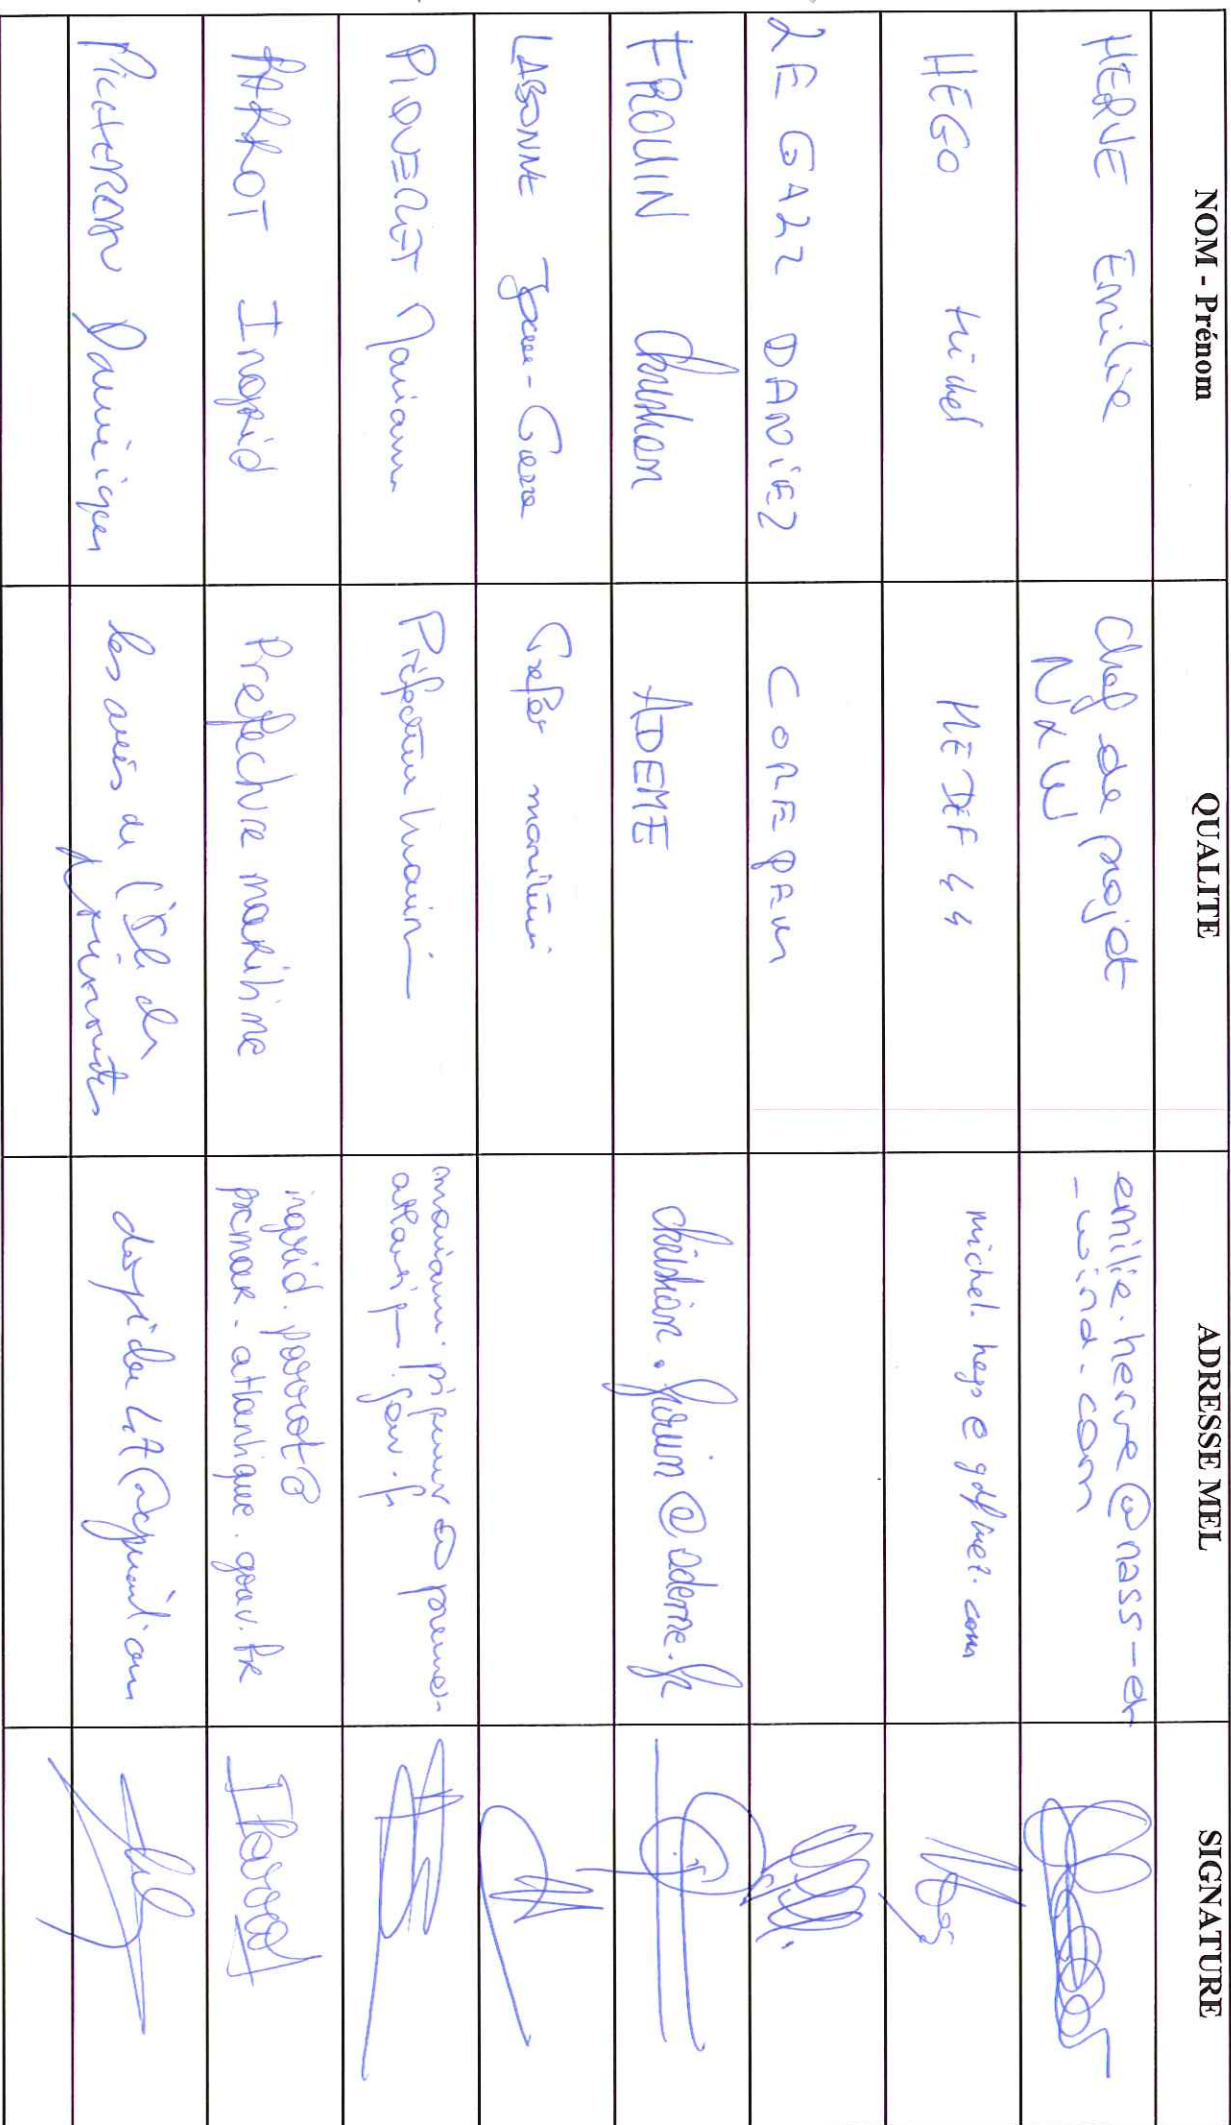 NOM - Prénom QUALITE ADRESSE MEL SIGNATURE
HERVE Emilie Chef de projet emilie.herve@nass-et
N&W -wind.com
HEGO Michel MEDEF 44 michel.hego@gdfsuez.com
LE GALL DANIEL COREPEM
FROUIN Christian ADEME christian.frouin@ademe.fr
LABONNE Jean-
PIQUERET Préfecture
atlantique.gouv.fr
PARROT Ingrid Prefecture maritime ingrid.parrot@
premar-atlantique.gouv.fr
IParrot
Dominique les amis de l'île de
Noirmoutier